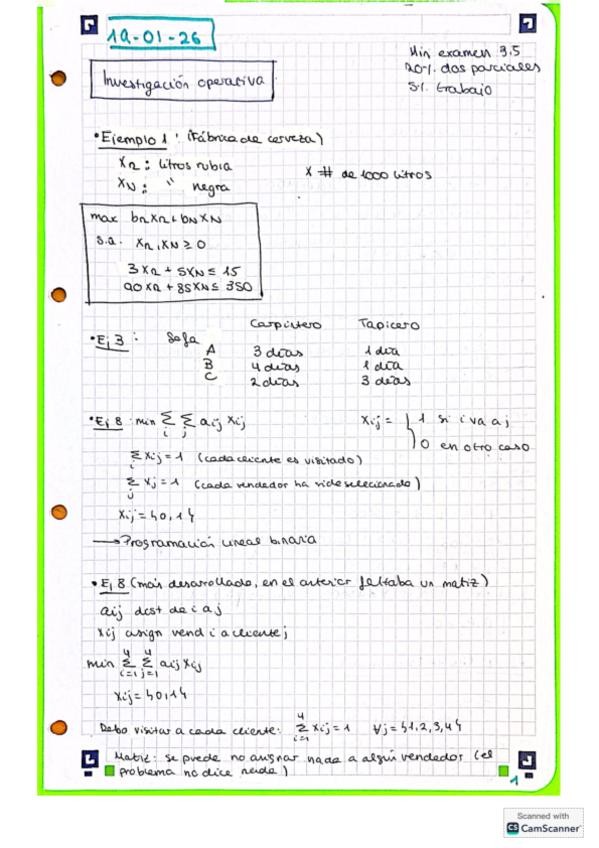 19-01-26
Min examen 3.5
20% dos parciales
5% trabajo
Investigación operativa
• Ejemplo 1: (Fábrica de cerveza)
XR: litros rubia
X # de 1000 litros
XN: " negra
max bRXR + bNXN
s.a. XR, XN ≥ 0
3XR + 5XN ≤ 15
90XR + 85XN ≤ 350
• Ej 3: Sofa Carpintero Tapicero
A 3 días 1 día
B 4 días 1 día
C 2 días 3 días
• Ej 8: min Σi Σj aij xij xij = { 1 si i va a j
0 en otro caso
Σi xij = 1 (cada cliente es visitado)
Σj xj = 1 (cada vendedor ha sido seleccionado)
xij = {0,1}
→ Programación lineal binaria
• Ej 8 (más desarrollado, en el anterior faltaba un matiz)
aij dist de i a j
xij asign vend i a cliente j
min Σ(i=1, 4) Σ(j=1, 4) aij xij
xij = {0,1}
Debo visitar a cada cliente: Σ(i=1, 4) xij = 1 ∀j = {1,2,3,4}
Matiz: se puede no asignar nada a algún vendedor (el
problema no dice nada)
1
Scanned with
CS CamScanner